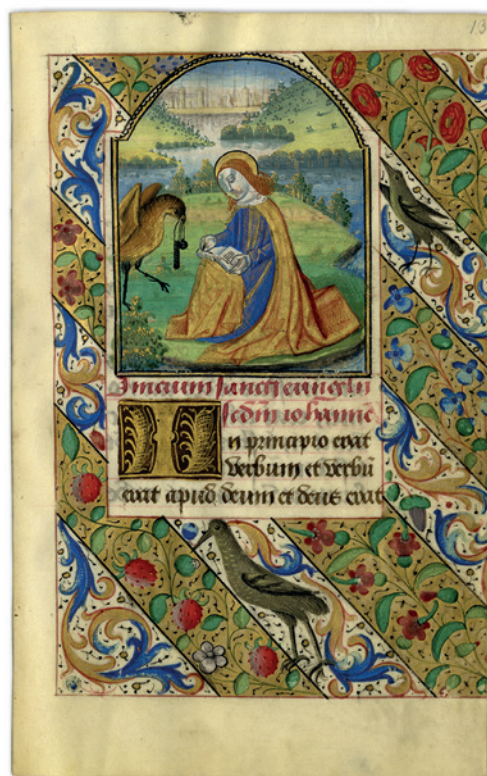 13
Inicium sancti euangelii
scdm iohanne
In principio erat
verbum et verbu
erat apud deum et deus erat